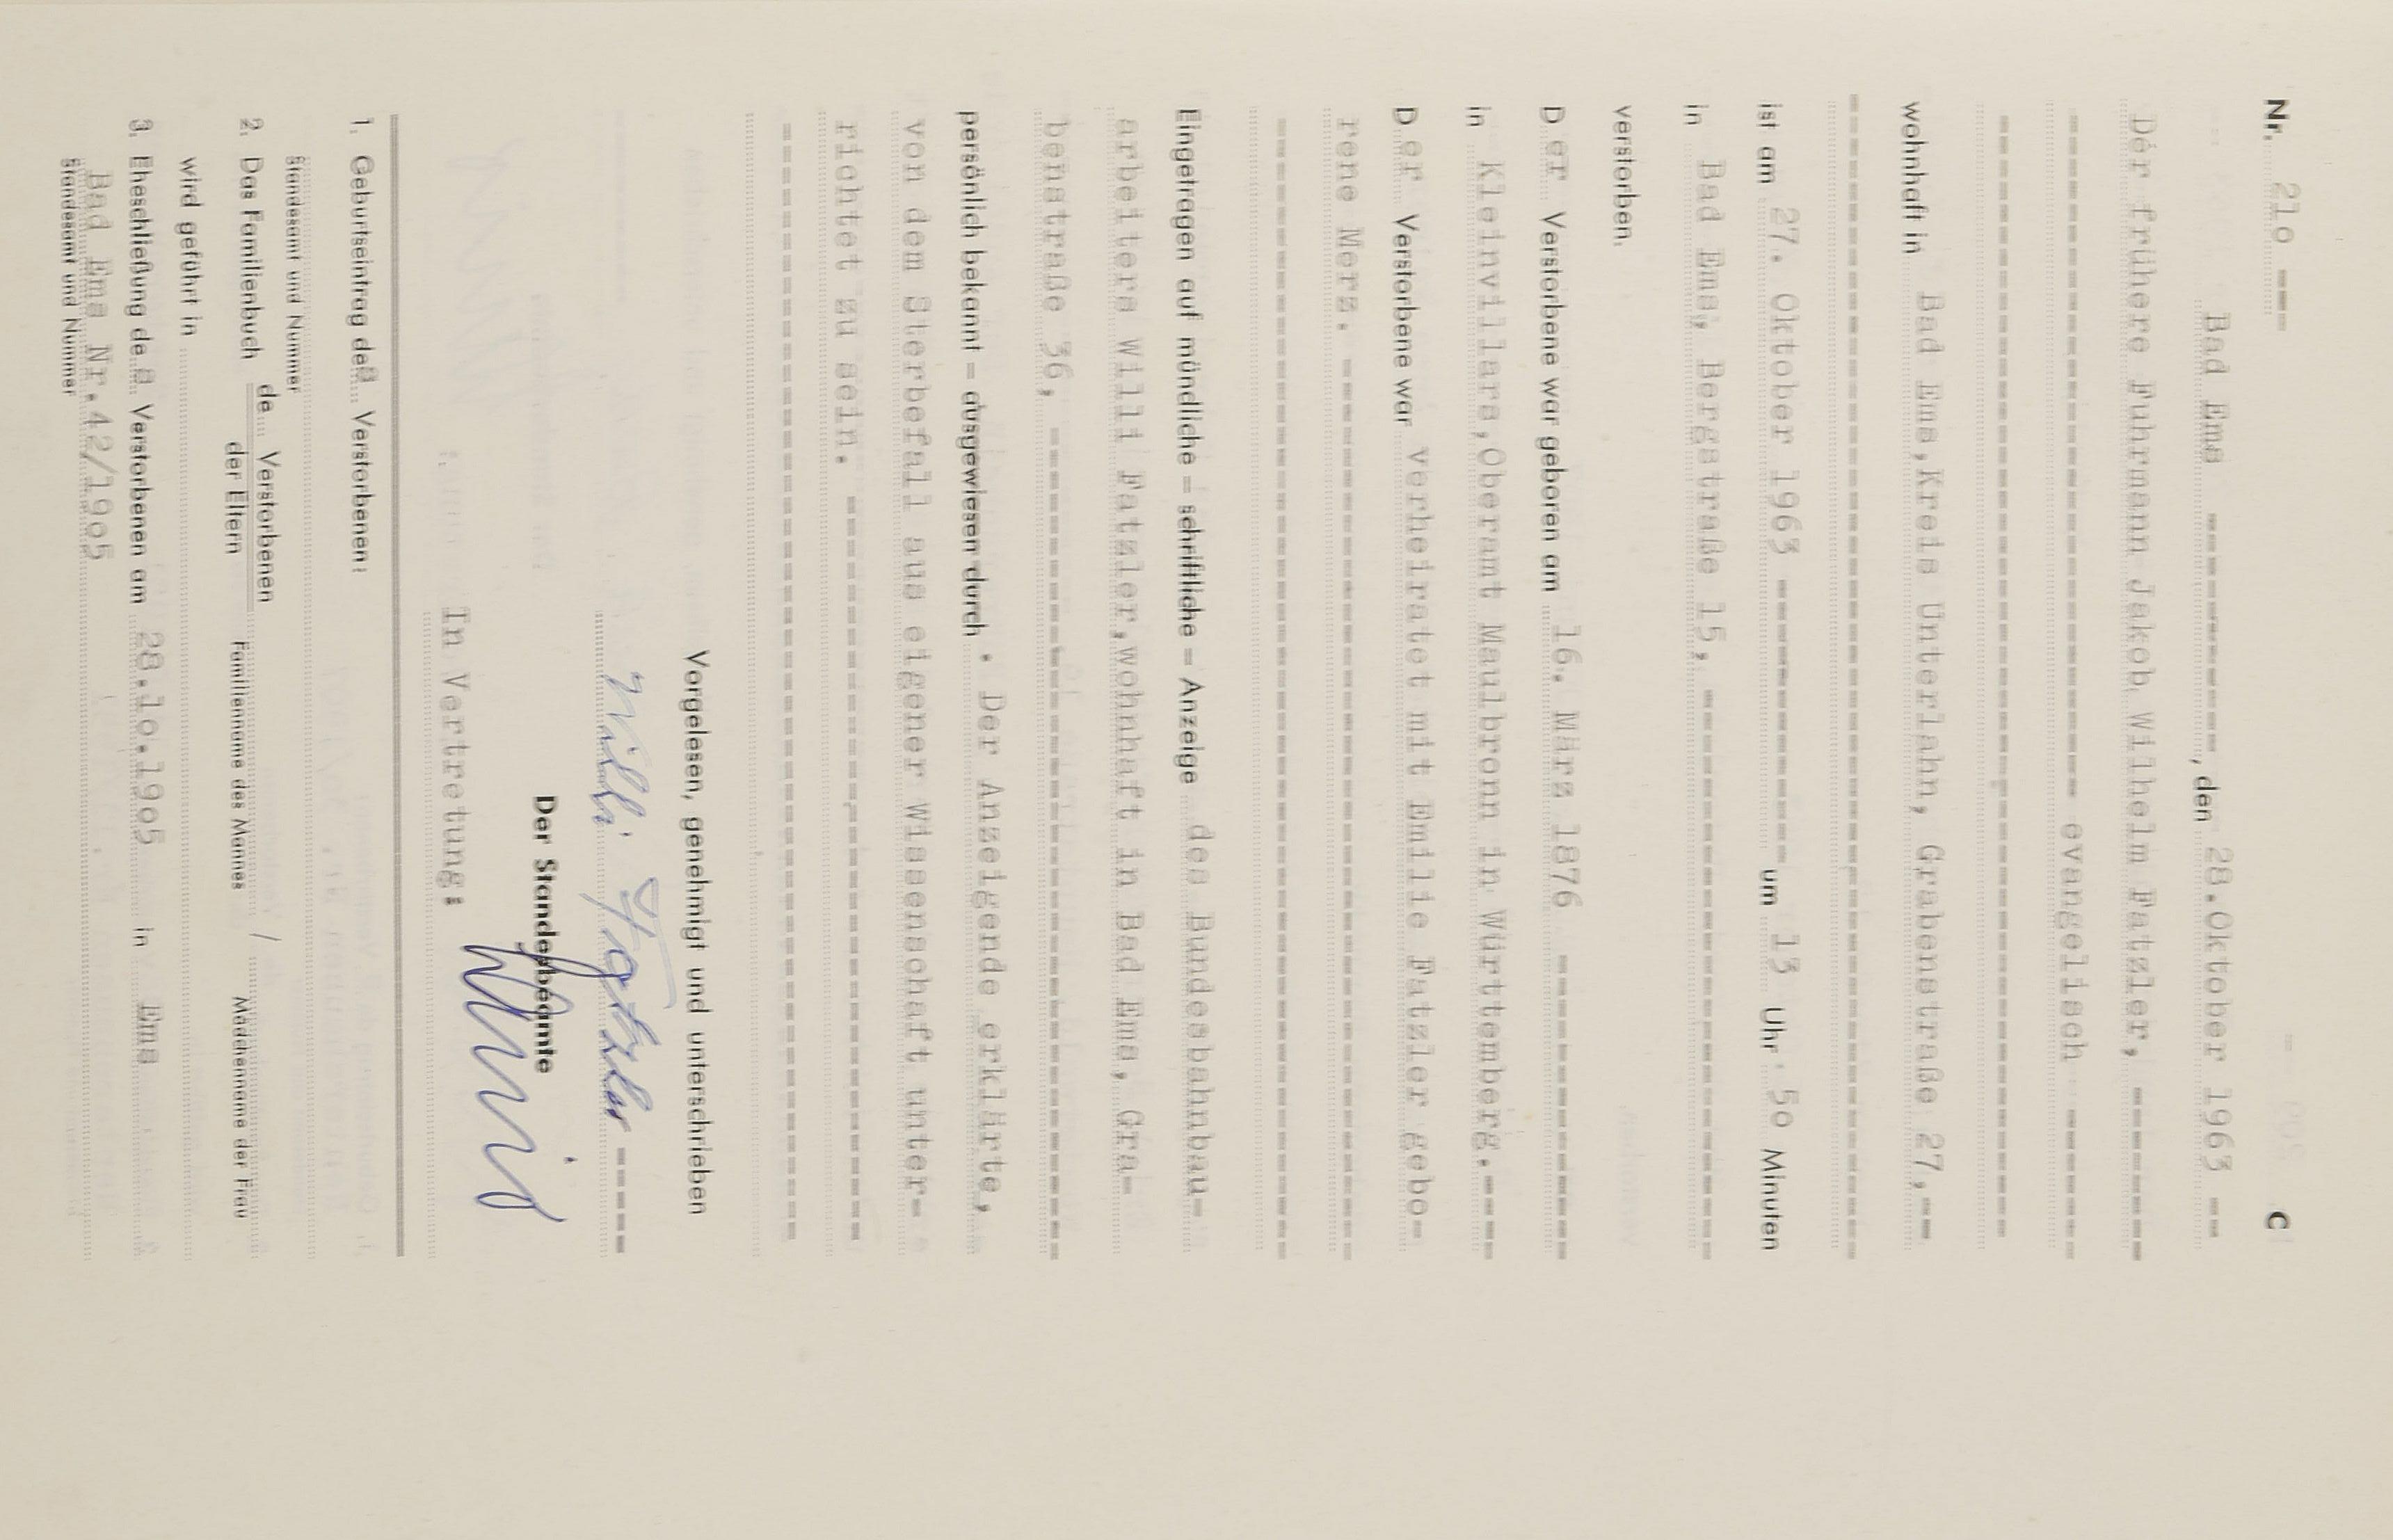 Nr. 21o --- C
Bad Ems ----------, den 28.Oktober 1963 --
Der frühere Fuhrmann Jakob Wilhelm Fatzler, ------
---------------------- evangelisch ------
wohnhaft in Bad Ems,Kreis Unterlahn, Grabenstraße 27,--
ist am 27. Oktober 1963 ------------ um 13 Uhr 5o Minuten
in Bad Ems, Bergstraße 15, ------------------------
verstorben.
D er Verstorbene war geboren am 16. März 1876 ------------
in Kleinvillars,Oberamt Maulbronn in Württemberg.----
D er Verstorbene war verheiratet mit Emilie Fatzler gebo-
rene Merz. ------------------------------------
Eingetragen auf mündliche – schriftliche – Anzeige des Bundesbahnbau-
arbeiters Willi Fatzler,wohnhaft in Bad Ems, Gra-
benstraße 36, ------------------------------------
persönlich bekannt – ausgewiesen durch . Der Anzeigende erklärte,
von dem Sterbefall aus eigener Wissenschaft unter-
richtet zu sein. ------------------------------
Vorgelesen, genehmigt und unterschrieben
Willi Fatzler ----
Der Standesbeamte
In Vertretung:
1. Geburtseintrag des Verstorbenen:
Standesamt und Nummer
2. Das Familienbuch de Verstorbenen / der Eltern
Familienname des Mannes / Mädchenname der Frau
wird geführt in
3. Eheschließung des Verstorbenen am 28.1o.19o5 in Ems
Bad Ems Nr.42/19o5
Standesamt und Nummer